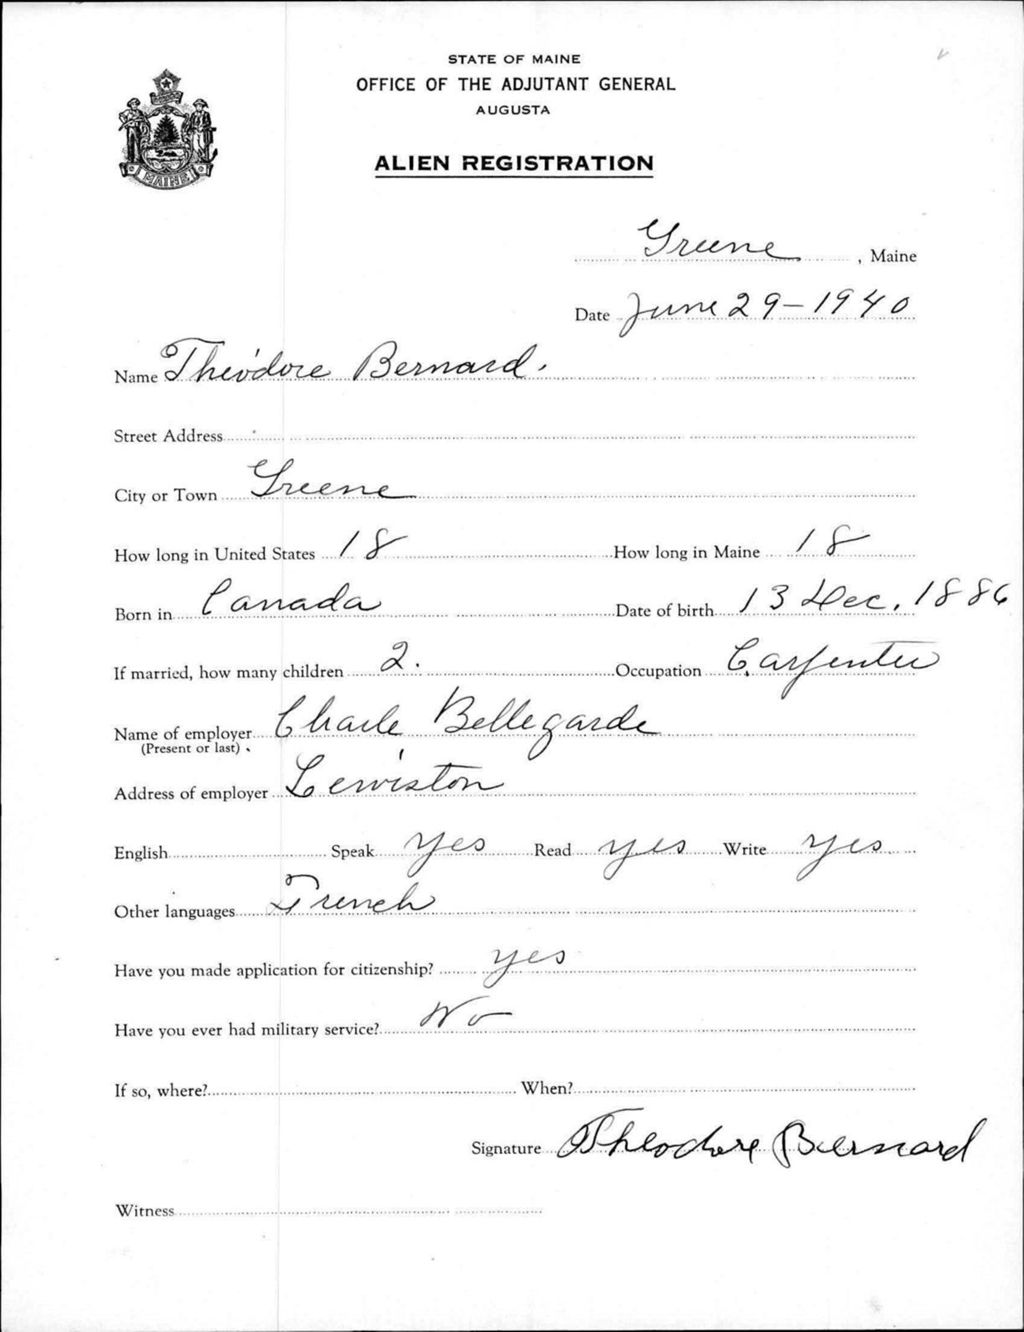 STATE OF MAINE
OFFICE OF THE ADJUTANT GENERAL
AUGUSTA
ALIEN REGISTRATION
MAINE
Greene, Maine
Date June 29-1940
Name Théodore Bernard.
Street Address
City or Town Greene
How long in United States 18 How long in Maine 18
Born in Canada Date of birth 13 Dec. 1886
If married, how many children 2. Occupation Carpenter
Name of employer Charle Bellegarde
(Present or last)
Address of employer Lewiston
English Speak yes Read yes Write yes
Other languages French
Have you made application for citizenship? yes
Have you ever had military service? No
If so, where? When?
Signature Theodore Bernard
Witness